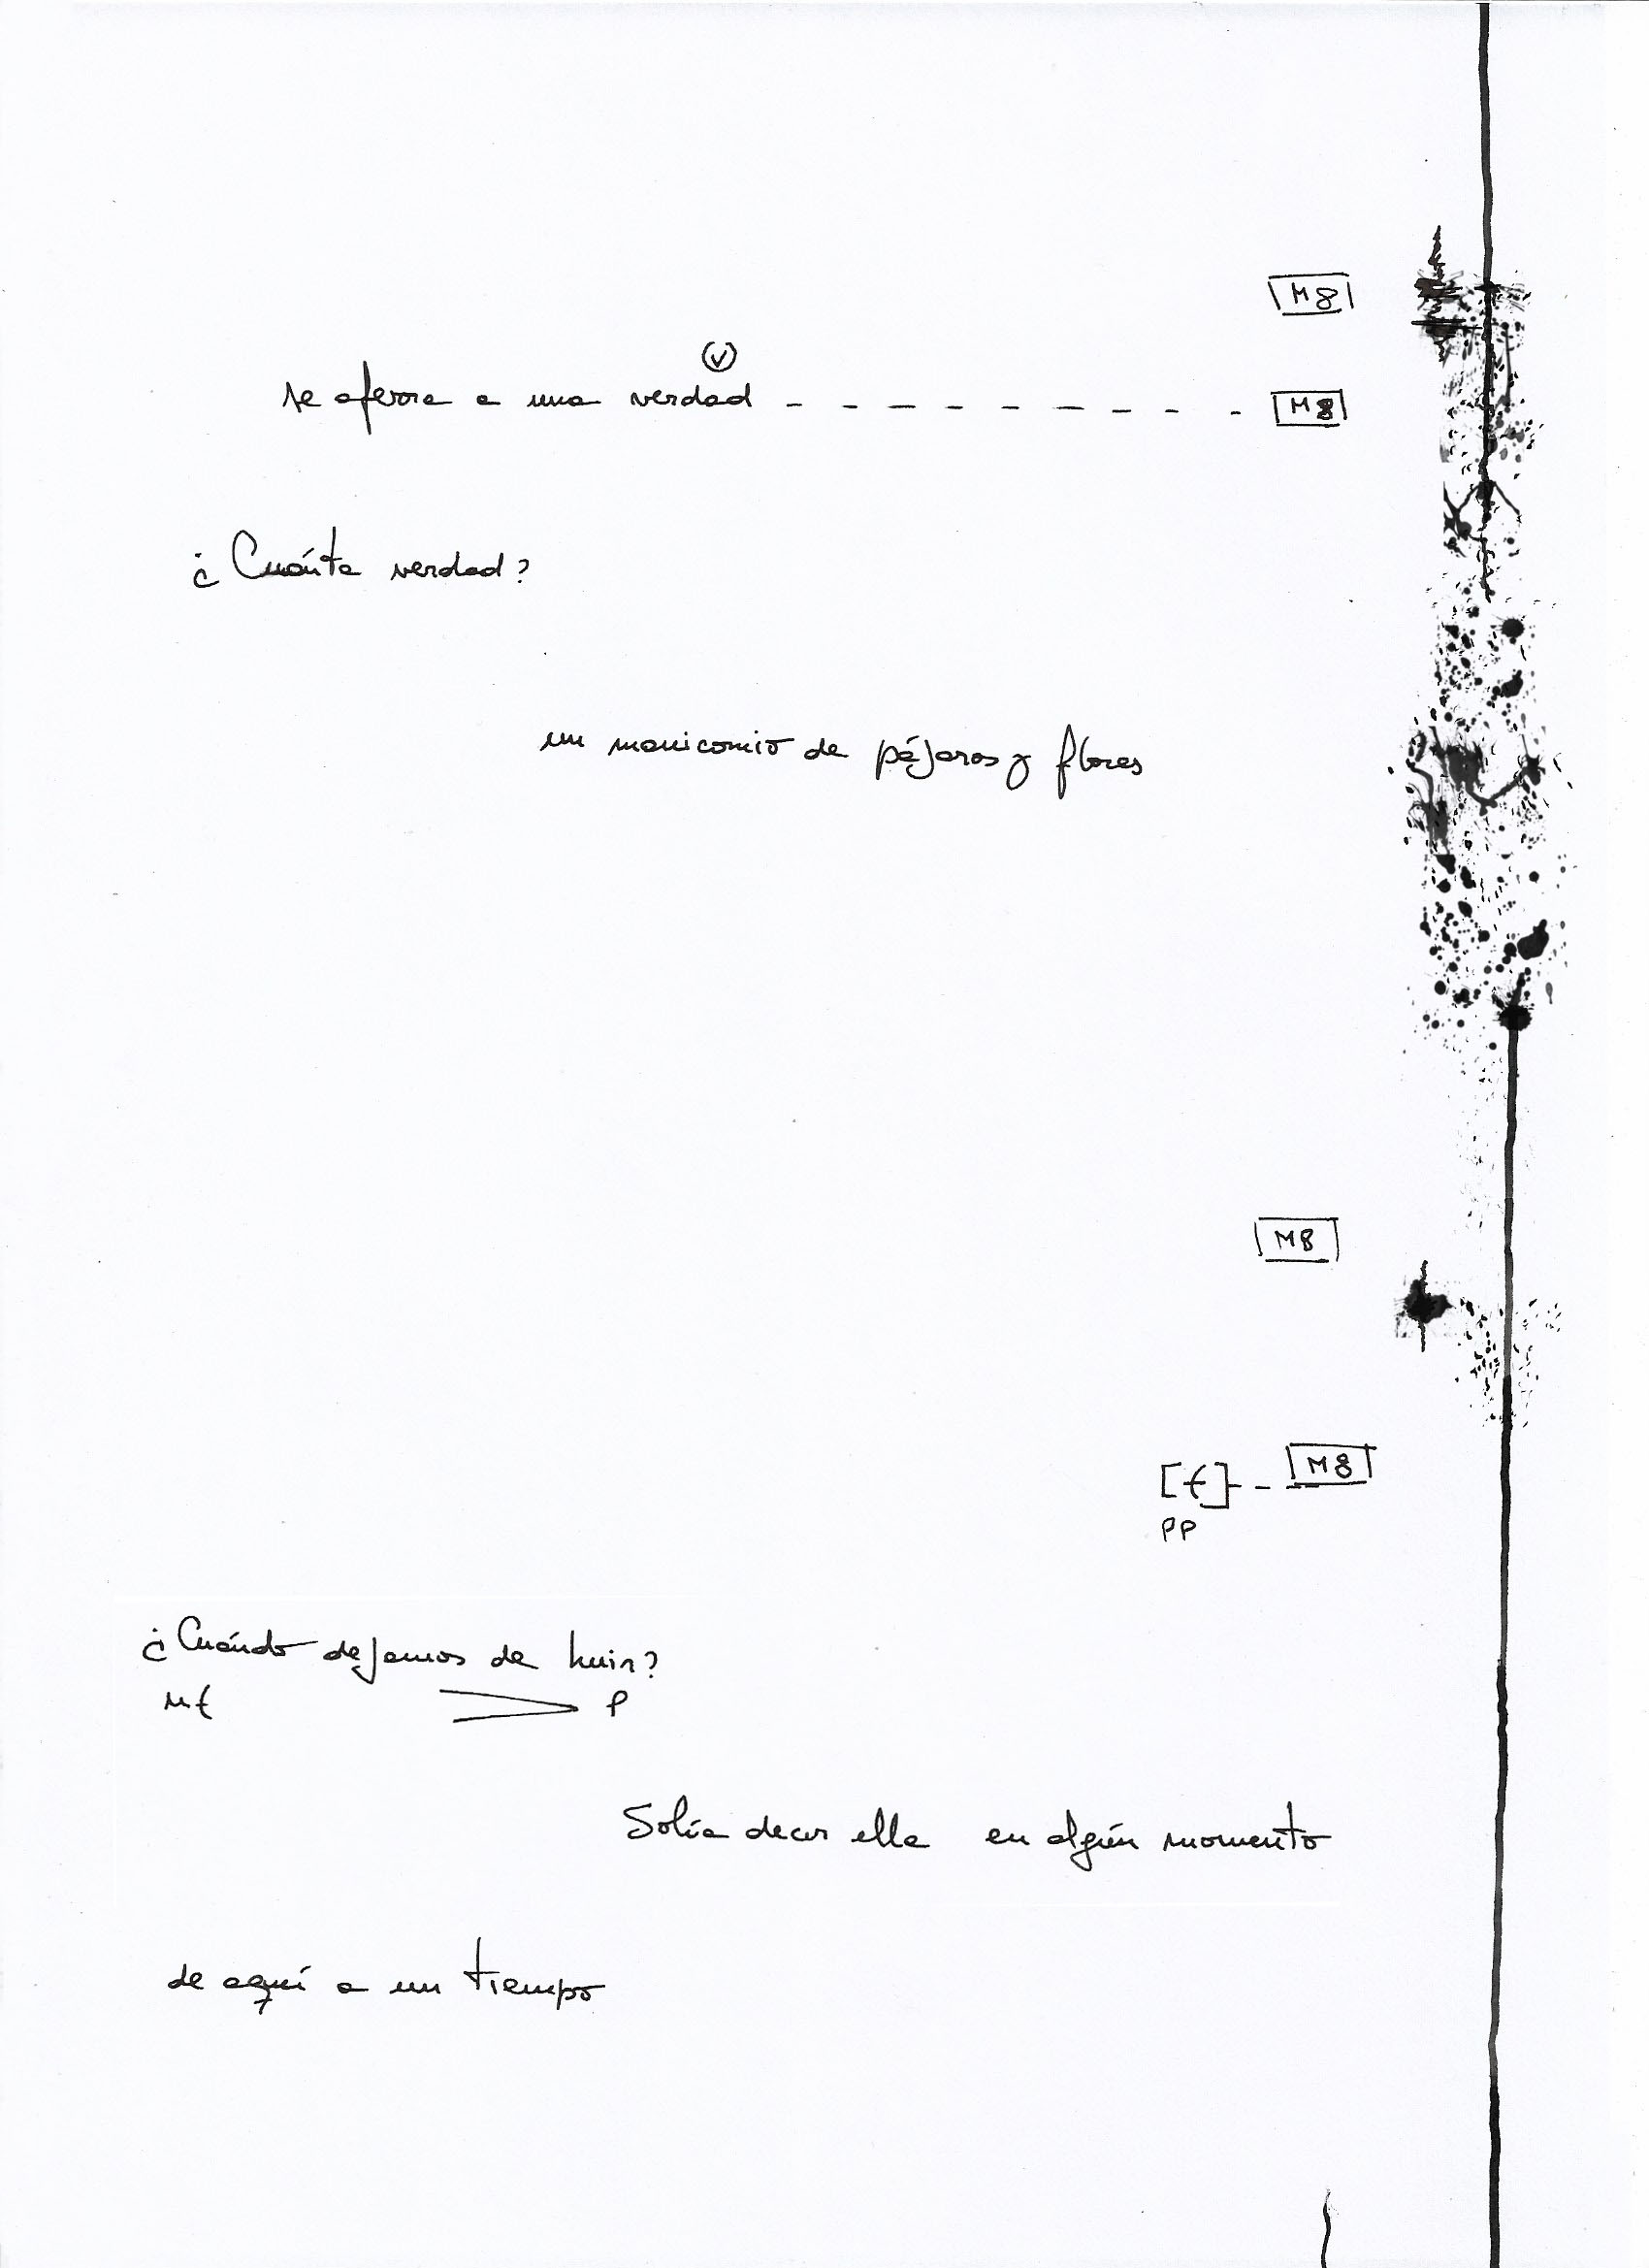 M8
V
se aferra a una verdad - - - - - - - - - M8
¿Cuánta verdad?
un manicomio de pájaros y flores
M8
[f] - - M8
pp
¿Cuándo dejamos de huir?
mf p
Solía decir ella en algún momento
de aquí a un tiempo